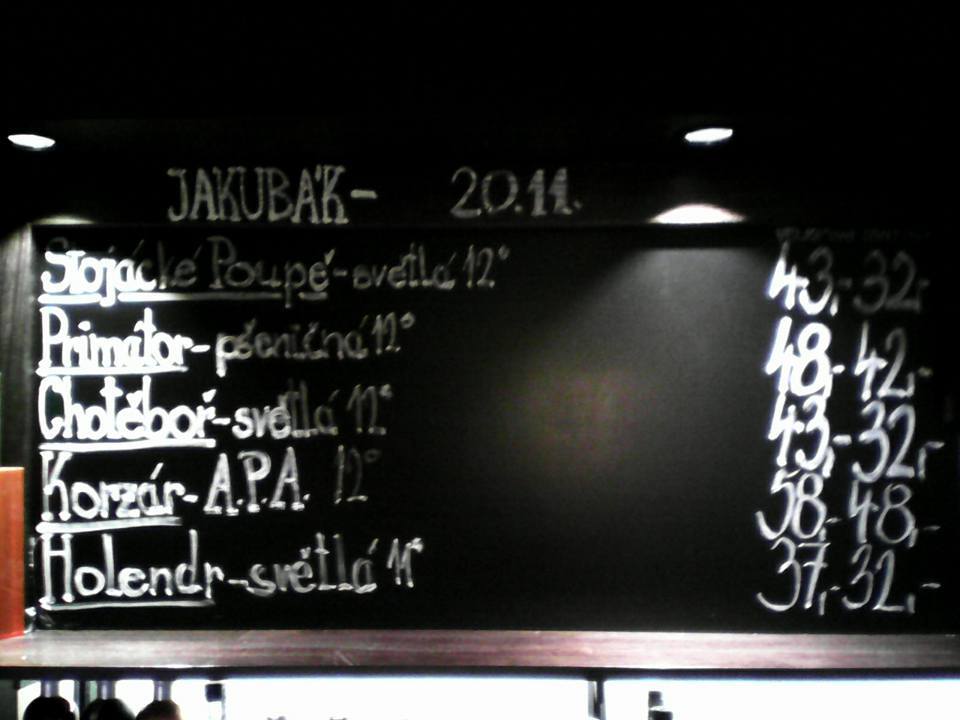 JAKUBÁK - 20.11.
Stojácké Poupě - světlá 12° 43,- 32,-
Primátor - pšeničná 12° 48,- 42,-
Chotěboř - světlá 12° 43,- 32,-
Korzár - A.P.A. 12° 58,- 48,-
Holendr - světlá 11° 37,- 32,-